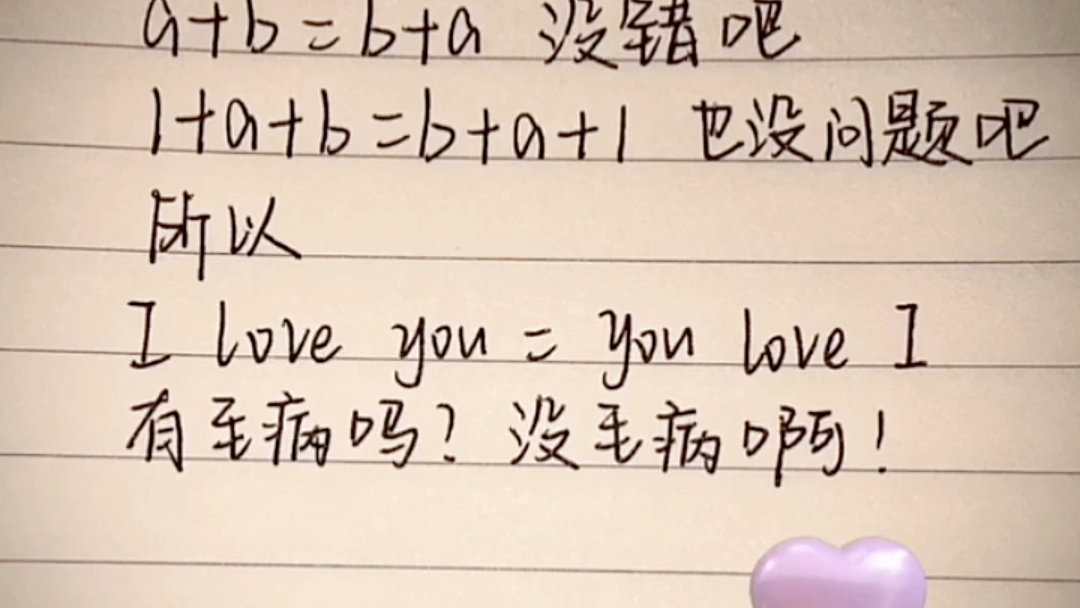 a+b=b+a 没错吧
1+a+b=b+a+1 也没问题吧
所以
I love you = you love I
有毛病吗？没毛病啊！